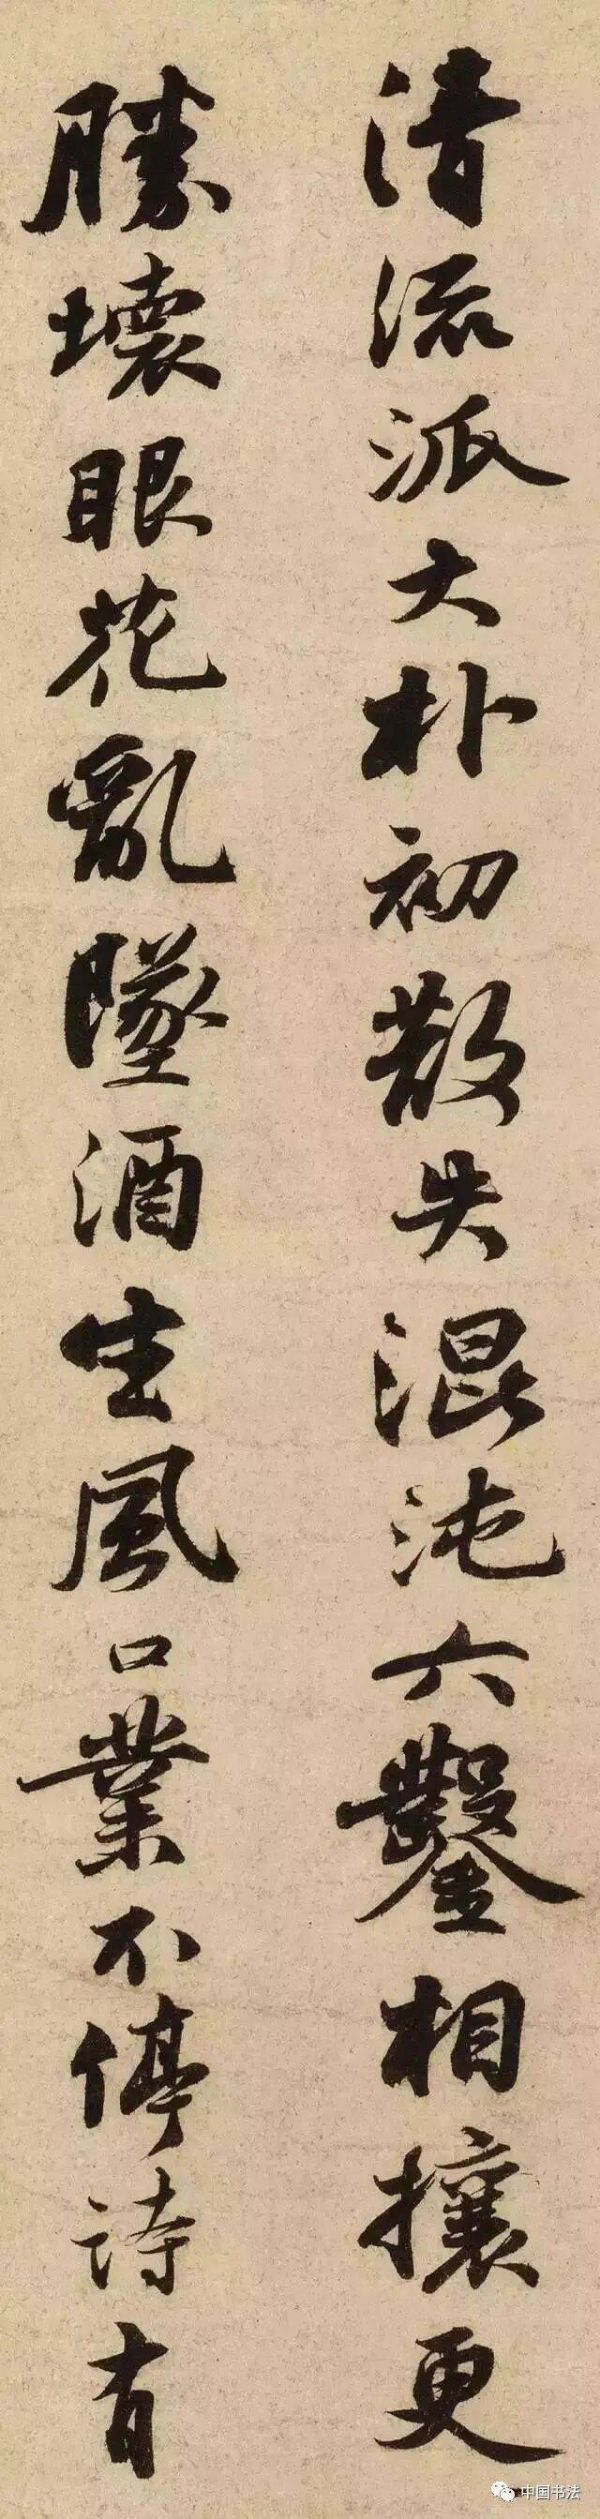 清流派大朴初散失混沌六鑿相攘更
勝壞眼花亂墜酒生風口業不停詩有
中国书法